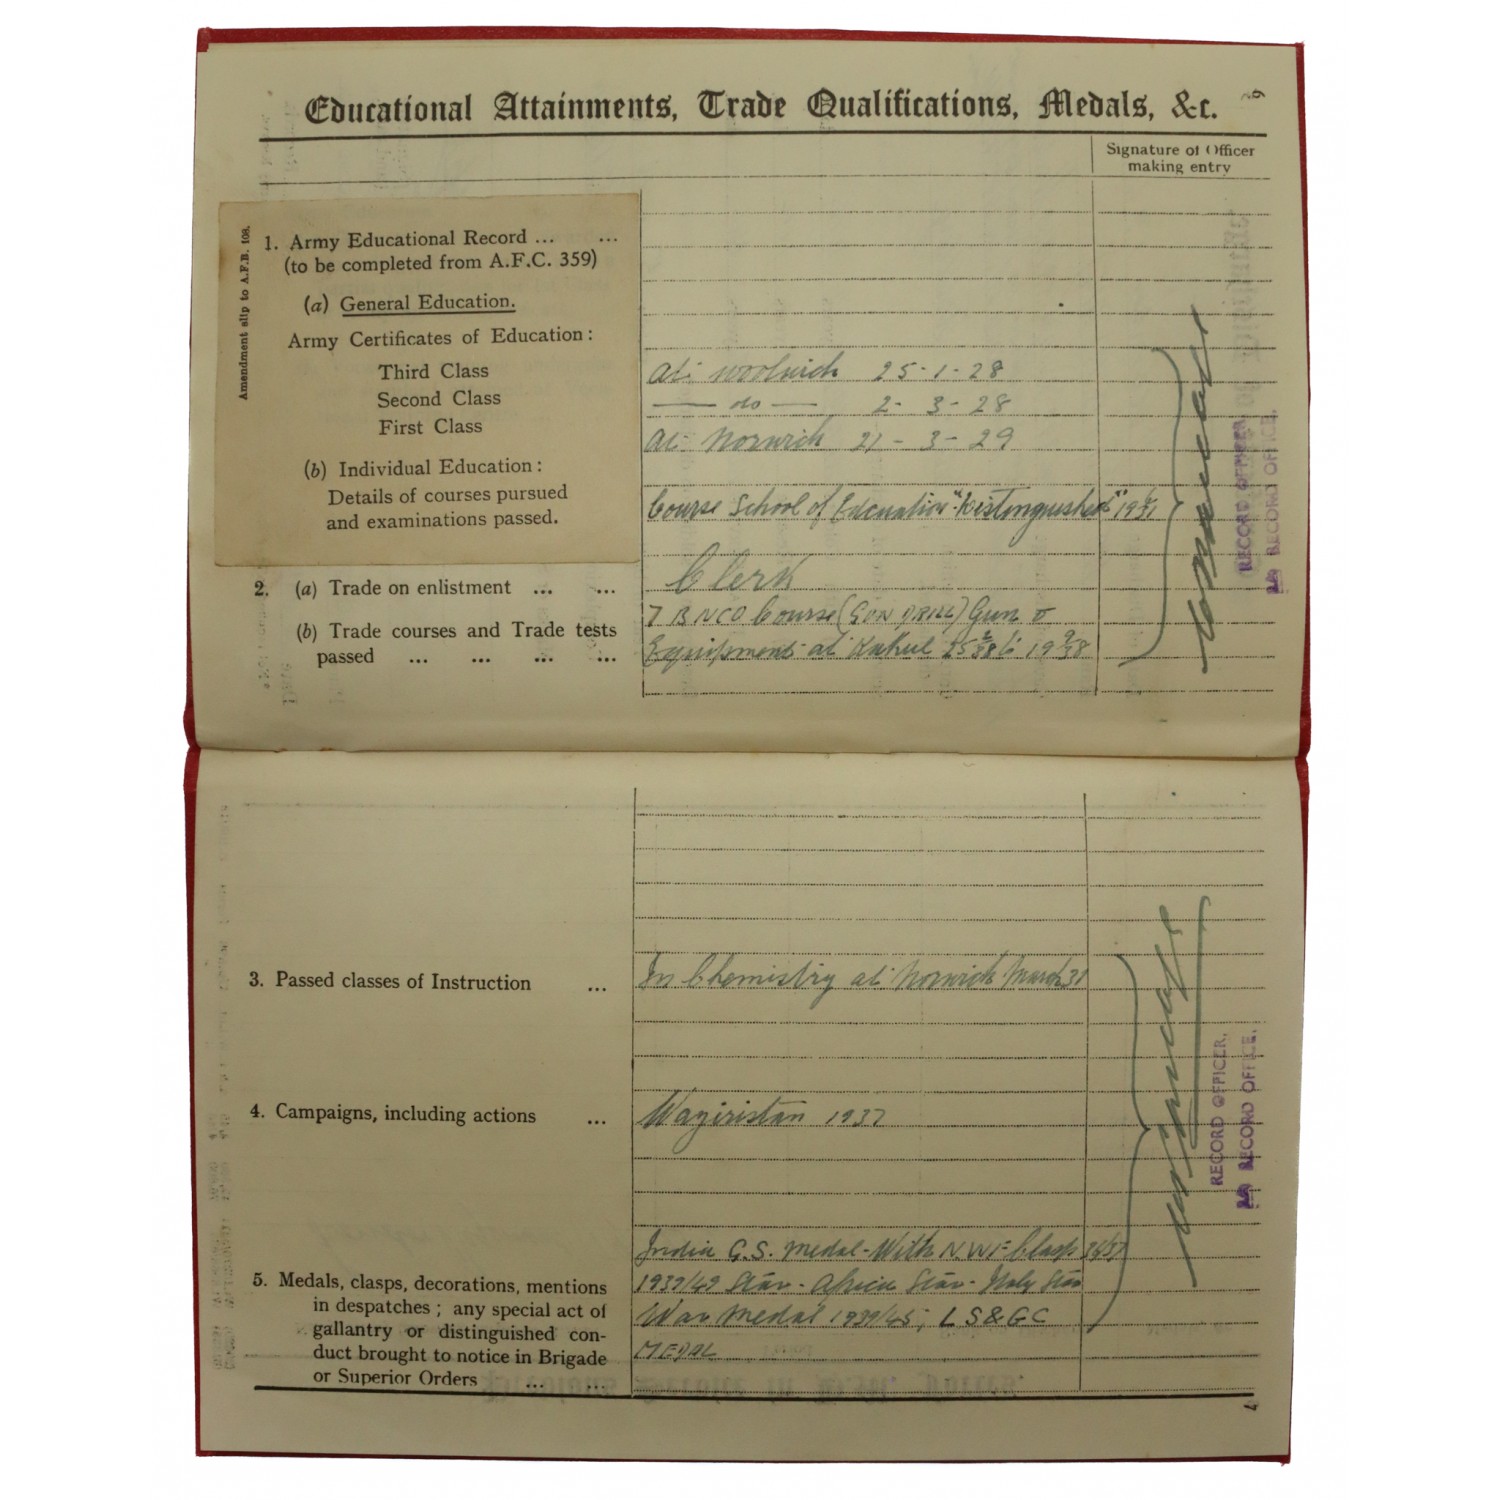 Educational Attainments, Trade Qualifications, Medals, &c.
6
Signature of Officer
making entry
Amendment slip to A.F.B. 108.
1. Army Educational Record ... ...
(to be completed from A.F.C. 359)
(a) General Education.
Army Certificates of Education:
Third Class At Woolwich 25-1-28
Second Class — do — 2-3-28
First Class At Norwich 21-3-29
(b) Individual Education:
Details of courses pursued
and examinations passed.
Course School of Education "Distinguished"
2. (a) Trade on enlistment ... ... Clerk
(b) Trade courses and Trade tests
passed ... ... ... ...
BNCO Course (GUN DRILL) Gun
Equipment at Kakul
RECORD OFFICER,
RECORD OFFICE.
3. Passed classes of Instruction ... In Chemistry at Norwich March 31
4. Campaigns, including actions ... Waziristan 1937
RECORD OFFICER,
RECORD OFFICE.
5. Medals, clasps, decorations, mentions
in despatches; any special act of
gallantry or distinguished con-
duct brought to notice in Brigade
or Superior Orders ... ...
India G.S. Medal - With NWF Clasp 36/37
Star - Africa Star - Italy Star
War Medal 1939/45; LS&GC
MEDAL
7